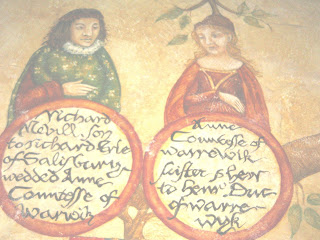 Richard
Nevill son
to richard Erle
of Salisbury
wedded Anne
Comtesse of
Warwik
Anne
Comtesse of
warrewik
suister & heir
to henr Duc
of warre
wyk